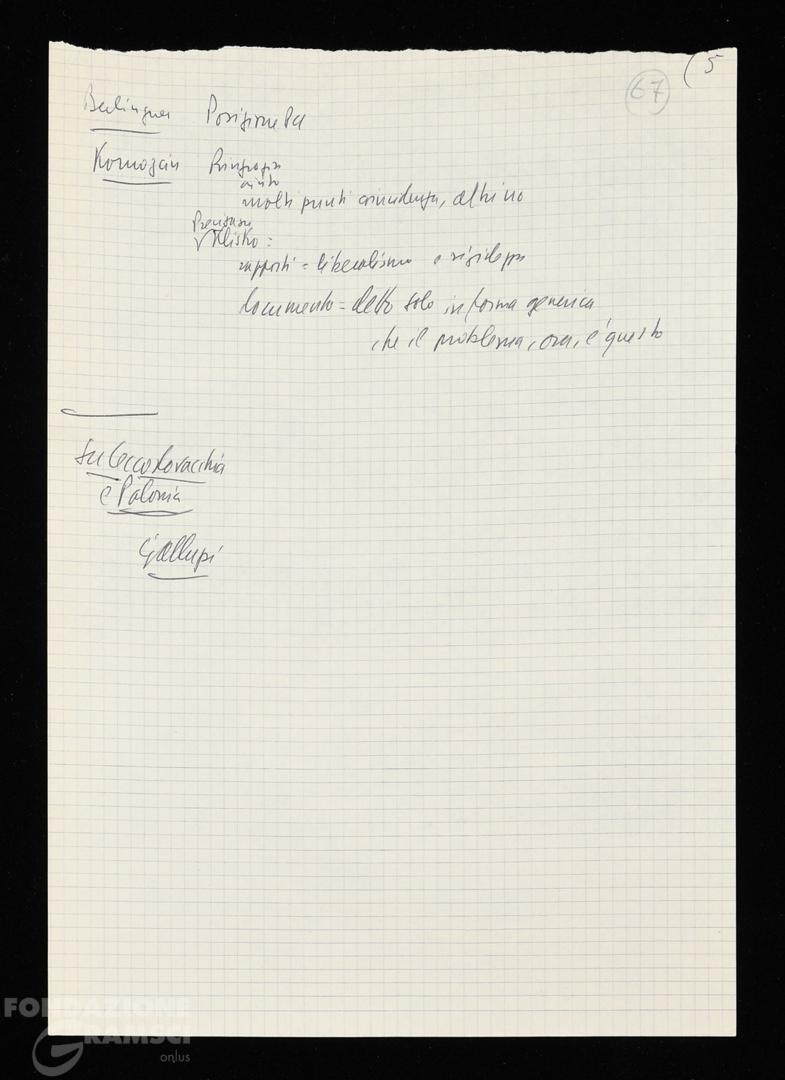 (5
67
Berlinguer Posizione PCI
Komozin Ringrazia
aiuto
molti punti coincidenza, altri no
Klisko:
rapporti = liberalismo e
documento = detto solo in forma generica
che il problema, ora, è questo
Su Cecoslovacchia
e Polonia
Gallupi
FONDAZIONE
GRAMSCI
onlus